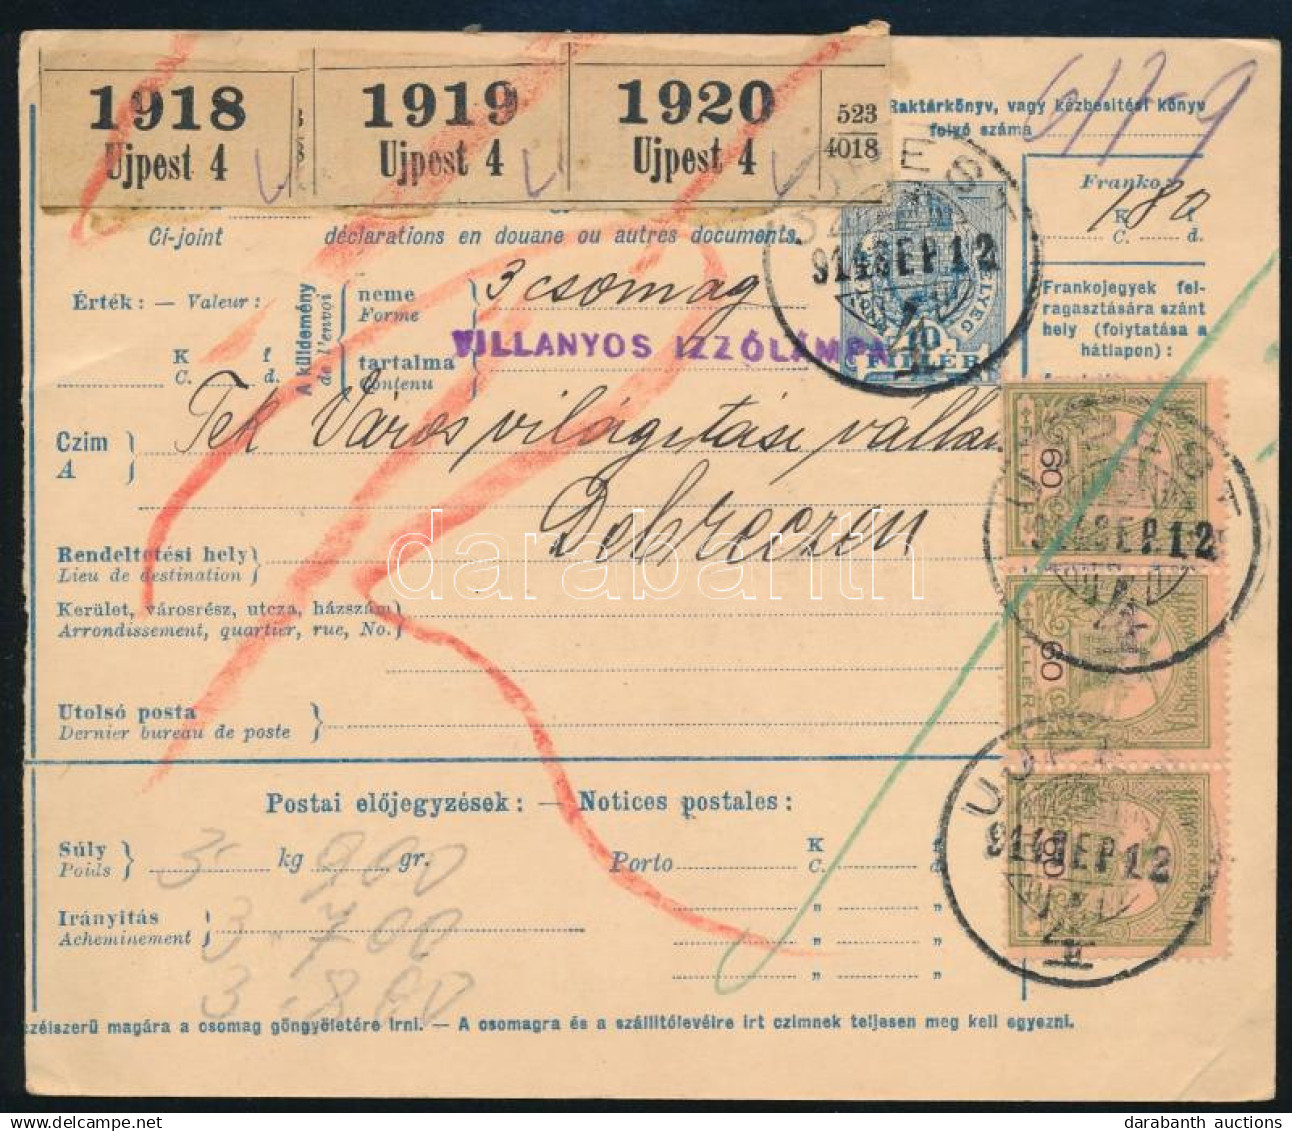 1918
Ujpest 4
1919
Ujpest 4
1920
Ujpest 4
523
4018
Raktárkönyv, vagy kézbesitési könyv
folyó száma
617-9
Franko
K f
180
C. d.
Ci-joint déclarations en douane ou autres documents.
UJPEST
914 SEP 12
4
Érték: — Valeur:
A küldemény
de l'envoi
neme
Forme
3 csomag
tartalma
Contenu
VILLANYOS IZZÓLÁMPA
FILLÉR
K f
C. d.
Frankojegyek fel-
ragasztására szánt
hely (folytatása a
hátlapon):
Czim
A
Tek Város világitási vállan
Debreczen
60
UJPEST
914 SEP 12
60
60
UJPEST
914 SEP 12
Rendeltetési hely
Lieu de destination
Kerület, városrész, utcza, házszám
Arrondissement, quartier, rue, No.
Utolsó posta
Dernier bureau de poste
Postai előjegyzések: — Notices postales:
Súly
Poids
3 kg 900 gr.
Porto
K f
C. d.
Irányitás
Acheminement
3 . 700
3 . 800
czélszerü magára a csomag göngyöletére irni. — A csomagra és a szállitólevélre irt czimnek teljesen meg kell egyezni.
darabanth
darabanth auctions